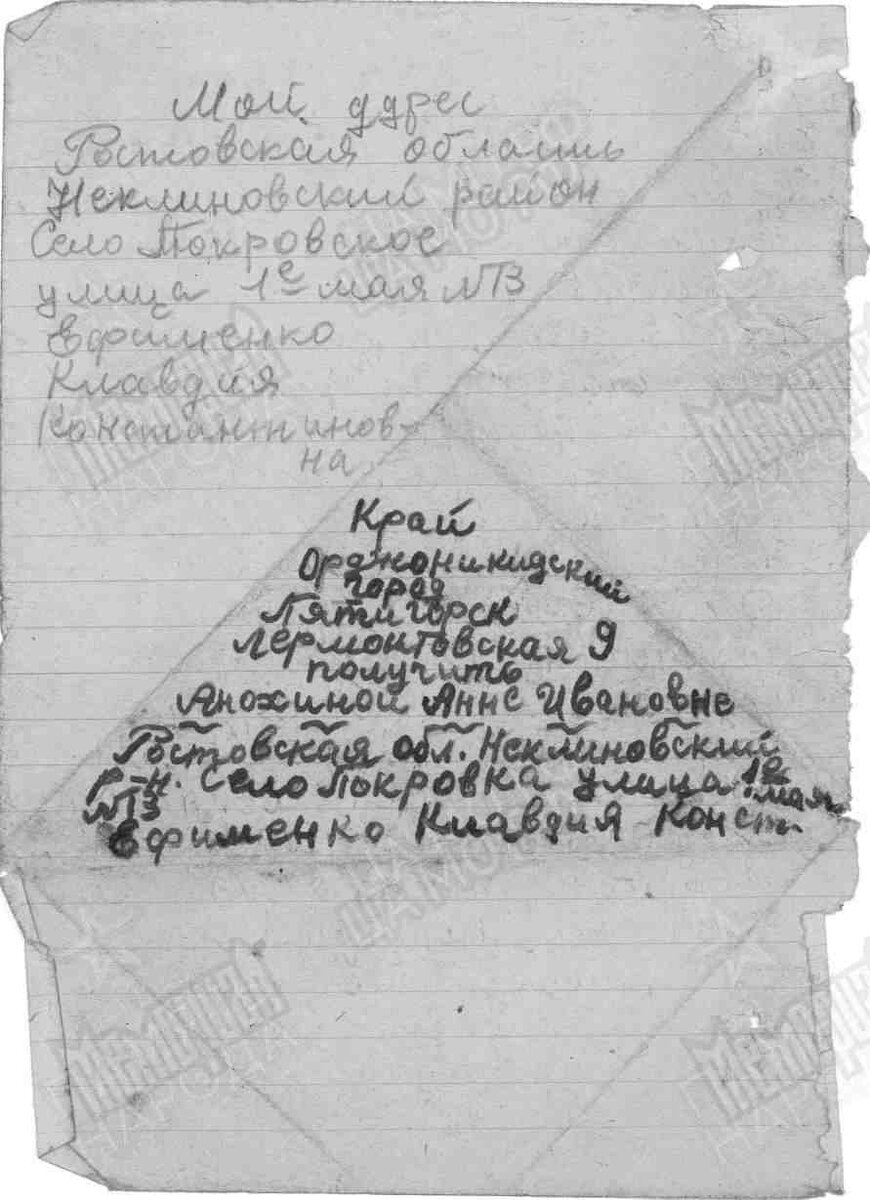 Мой адрес
Ростовская область
Неклиновский район
Село Покровское
улица 1е мая №13
Ефименко
Клавдия
Константинов-
на
Край
Орджоникидский
город
Пятигорск
Лермонтовская 9
получить
Анохиной Анне Ивановне
Ростовская обл. Неклиновский
р-н. Село Покровка улица 1е мая
№13
Ефименко Клавдия Конст.